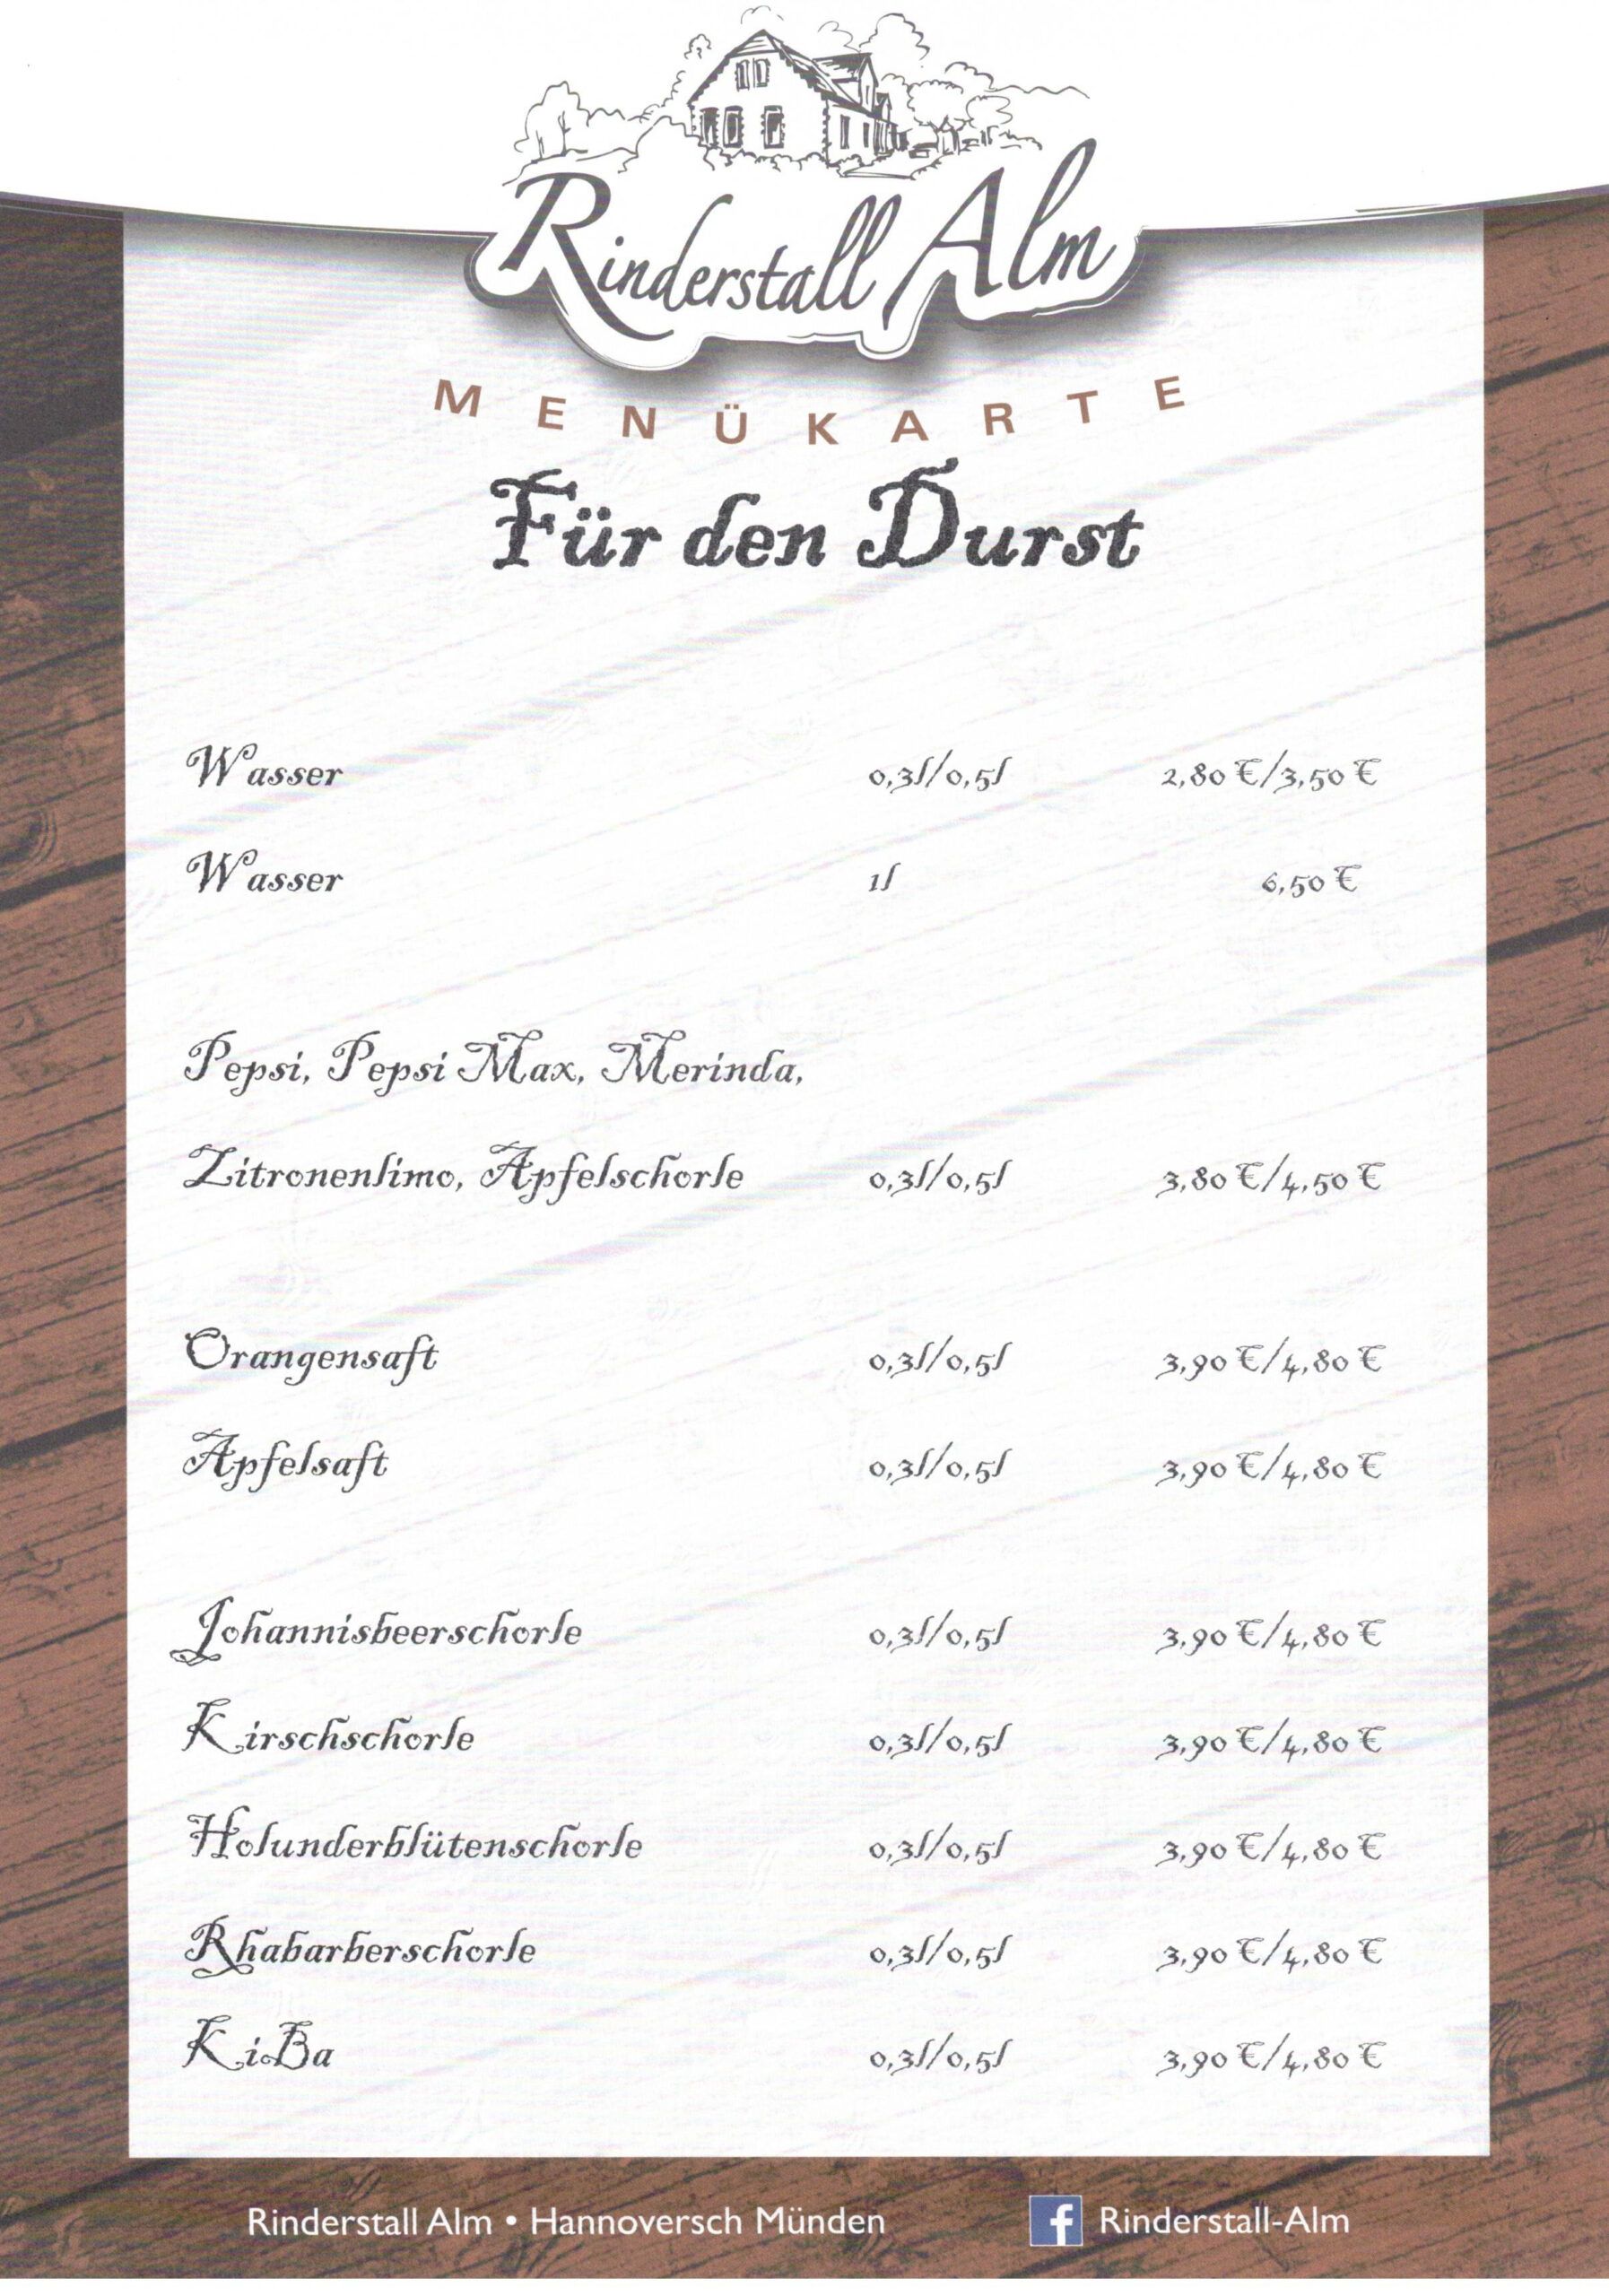 Rinderstall Alm
MENÜKARTE
Für den Durst
Wasser 0,3l/0,5l 2,80 €/3,50 €
Wasser 1l 6,50 €
Pepsi, Pepsi Max, Merinda,
Zitronenlimo, Apfelschorle 0,3l/0,5l 3,80 €/4,50 €
Orangensaft 0,3l/0,5l 3,90 €/4,80 €
Apfelsaft 0,3l/0,5l 3,90 €/4,80 €
Johannisbeerschorle 0,3l/0,5l 3,90 €/4,80 €
Kirschschorle 0,3l/0,5l 3,90 €/4,80 €
Holunderblütenschorle 0,3l/0,5l 3,90 €/4,80 €
Rhabarberschorle 0,3l/0,5l 3,90 €/4,80 €
KiBa 0,3l/0,5l 3,90 €/4,80 €
Rinderstall Alm • Hannoversch Münden f Rinderstall-Alm